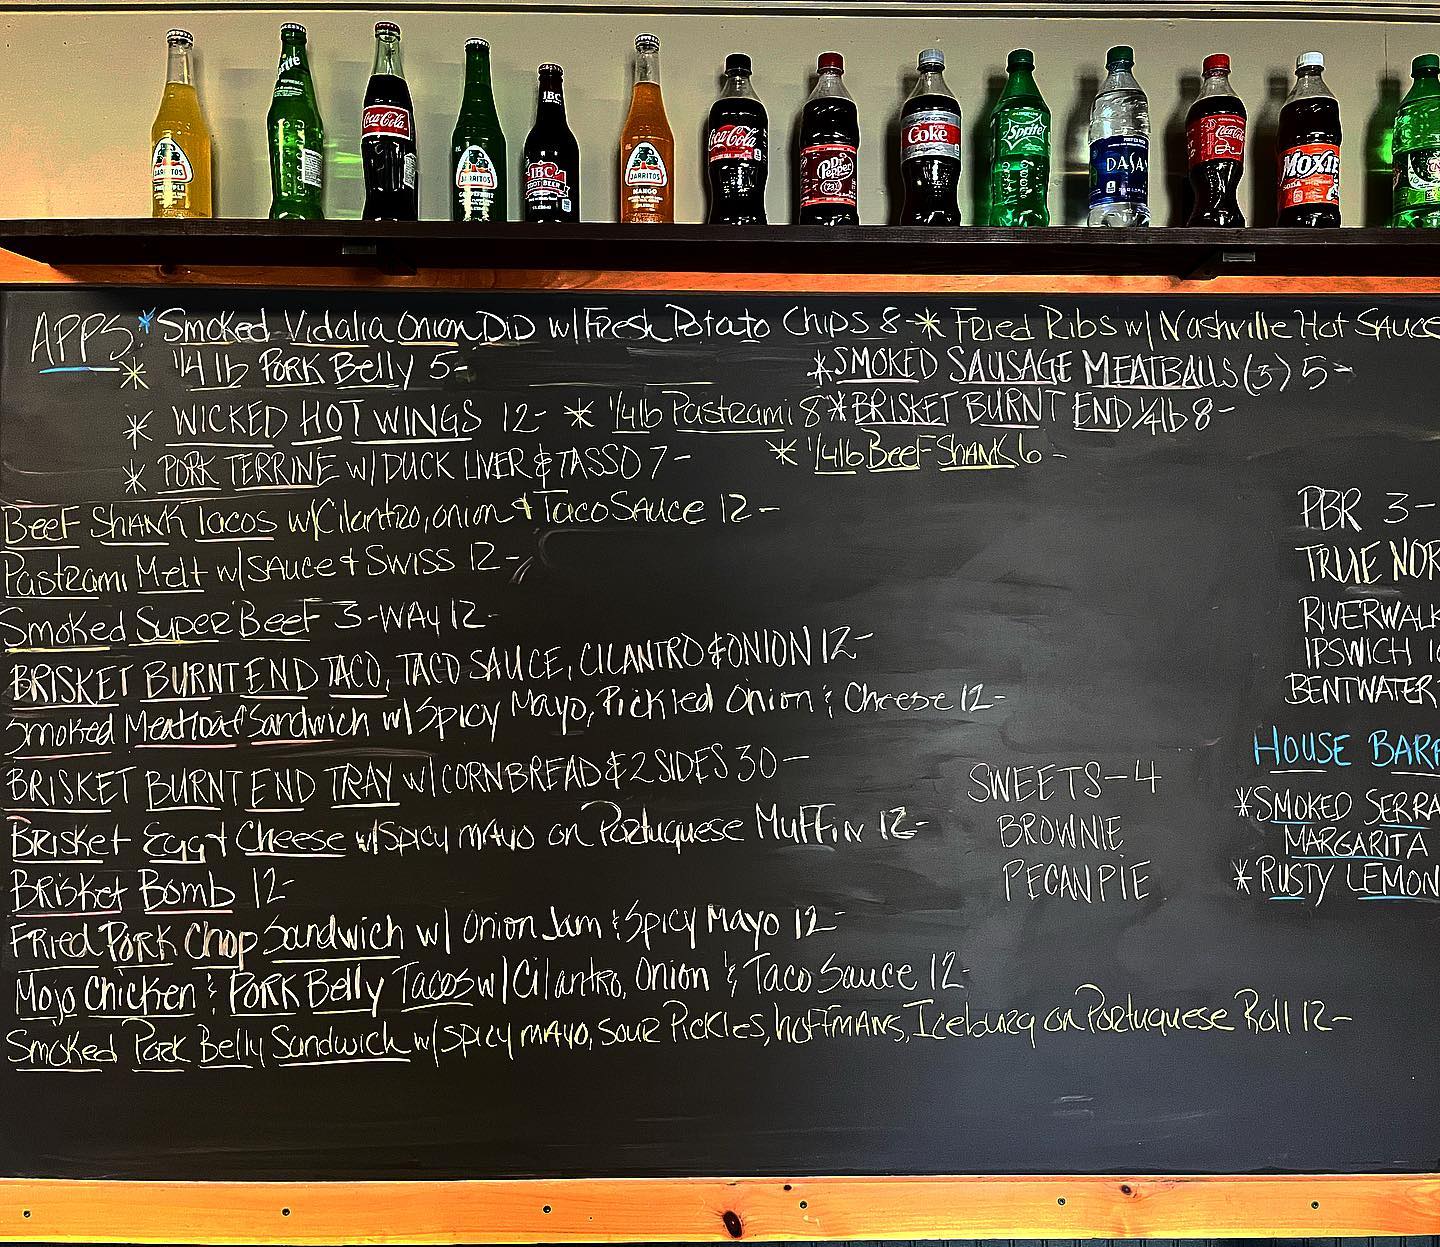 Sprite
Coca-Cola
JARRITOS
JARRITOS
IBC
IBC
ROOT BEER
JARRITOS
MANGO
Coca-Cola
Dr Pepper
23
Coke
Sprite
DASA
Coca-Cola
MOXIE
APPS: * Smoked Vidalia Onion Dip w/ Fresh Potato Chips 8- * Fried Ribs w/ Nashville Hot Sauce
* 1/4 lb Pork Belly 5- * SMOKED SAUSAGE MEATBALLS (3) 5-
* WICKED HOT WINGS 12- * 1/4 lb Pastrami 8 * BRISKET BURNT END 1/4 lb 8-
* PORK TERRINE w/ DUCK LIVER & TASSO 7- * 1/4 lb Beef Shank 6-
Beef Shank Tacos w/ Cilantro, onion & Taco Sauce 12-
Pastrami Melt w/ Sauce & Swiss 12-
Smoked Super Beef 3-Way 12-
BRISKET BURNT END TACO, TACO SAUCE, CILANTRO & ONION 12-
Smoked Meatloaf Sandwich w/ Spicy Mayo, Pickled Onion & Cheese 12-
BRISKET BURNT END TRAY w/ CORNBREAD & 2 SIDES 30-
Brisket Egg & Cheese w/ Spicy Mayo on Portuguese Muffin 12-
Brisket Bomb 12-
Fried Pork Chop Sandwich w/ Onion Jam & Spicy Mayo 12-
Mojo Chicken & Pork Belly Tacos w/ Cilantro, Onion & Taco Sauce 12-
Smoked Pork Belly Sandwich w/ Spicy Mayo, Sour Pickles, hoffmans, Iceburg on Portuguese Roll 12-
SWEETS-4
BROWNIE
PECAN PIE
PBR 3-
TRUE NOR
RIVERWALK
IPSWICH
BENTWATER
HOUSE BARR
* SMOKED SERRA
MARGARITA
* RUSTY LEMON